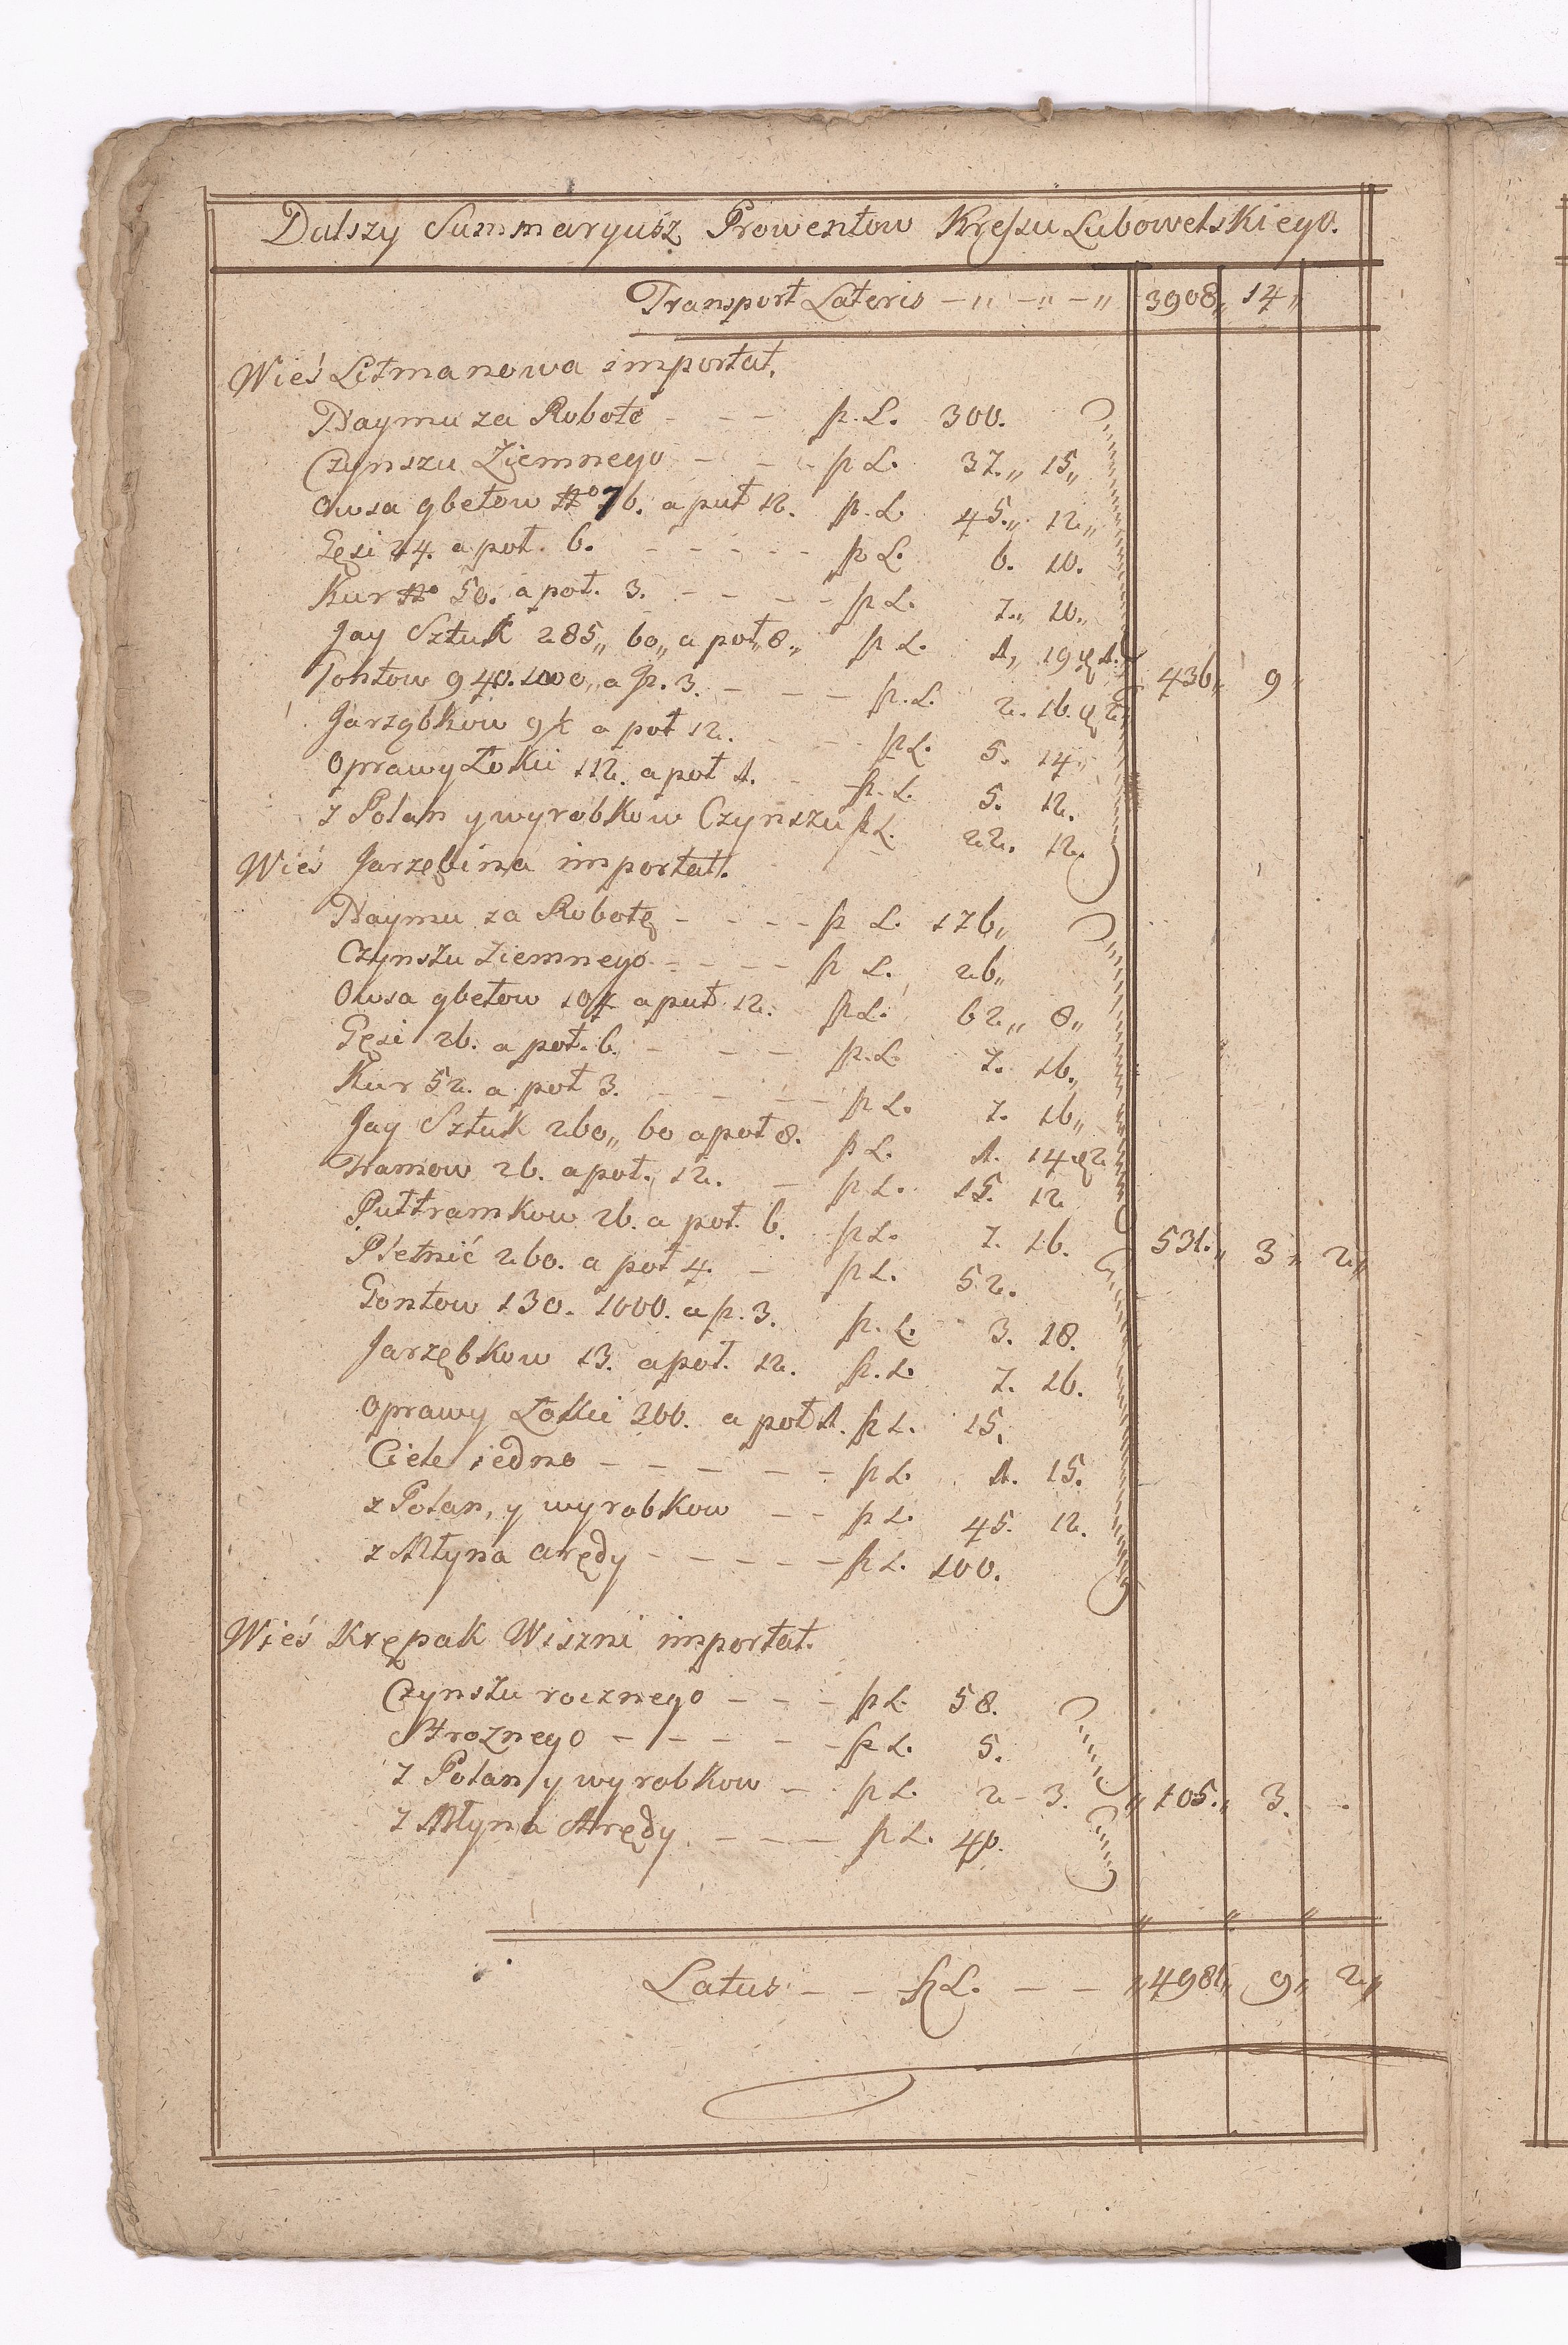 Dalszy Summaryusz Prowentow Kręsu Lubowelskiego.
Transport Lateris – „ – „ – „ 3908„ 14„
Wieś Litmanowa importat.
Naymu za Robote – – – p. L. 300.
Czynszu Ziemnego – – – p L. 37.„ 15„
Owsa gbełow No 76. a puł 12. p. L. 45.„ 12„
Gęsi 24. a poł. 6. – – – – – p L. 6. 10.
Kur No 50. a poł. 3. – – – – p L. 7.„ 10„
Jay Sztuk 285„ 60„ a poł„ 8„ p L. 1„ 19
Gontow 940. 1000„ a p. 3. – – – p. L. 2. 16. 436„ 9„
Jarząbkow 9 a poł 12. – – – p L. 5. 14„
Oprawy Łokci 112. a poł 1. – p. L. 5. 12.
z Polan y wyrobkow Czynszu p L. 22. 12.
Wieś Jarzębina importat.
Naymu za Robotę – – – – p L. 176„
Czynszu Ziemnego – – – – p L. 26„
Owsa gbełow 104 a puł 12. p L. 62„ 8„
Gęsi 26. a poł. 6. – – – p. L. 7. 16„
Kur 52. a poł 3. – – – – p L. 7. 16„
Jay Sztuk 260„ 60 a poł 8. p L. 1. 14 q 2
Tramow 26. a poł. 12. – p L. 15. 12
Pułtramkow 26. a poł. 6. p L. 7. 16. 531.„ 3„ 2„
Płetnić 260. a poł 4. – p L. 52.
Gontow 130. 1000. a p. 3. p. L. 3. 18.
Jarzębkow 13. a poł. 12. p. L. 7. 16.
Oprawy Łokci 300. a poł 1. p L. 15.
Ciele iedno – – – – – p L. 1. 15.
z Polan, y wyrobkow – – p L. 45. 12.
z Młyna arędy – – – – – p L. 100.
Wieś Krępak Wiszni importat.
Czynszu rocznego – – – p L. 58.
Stroznego – – – – – p L. 5.
z Polan y wyrobkow – p L. 2 – 3. „ 105.„ 3. – .
z Młyna Arędy. – – – p L. 40.
Latus – – p L. – – „ 4981„ 9„ 2„